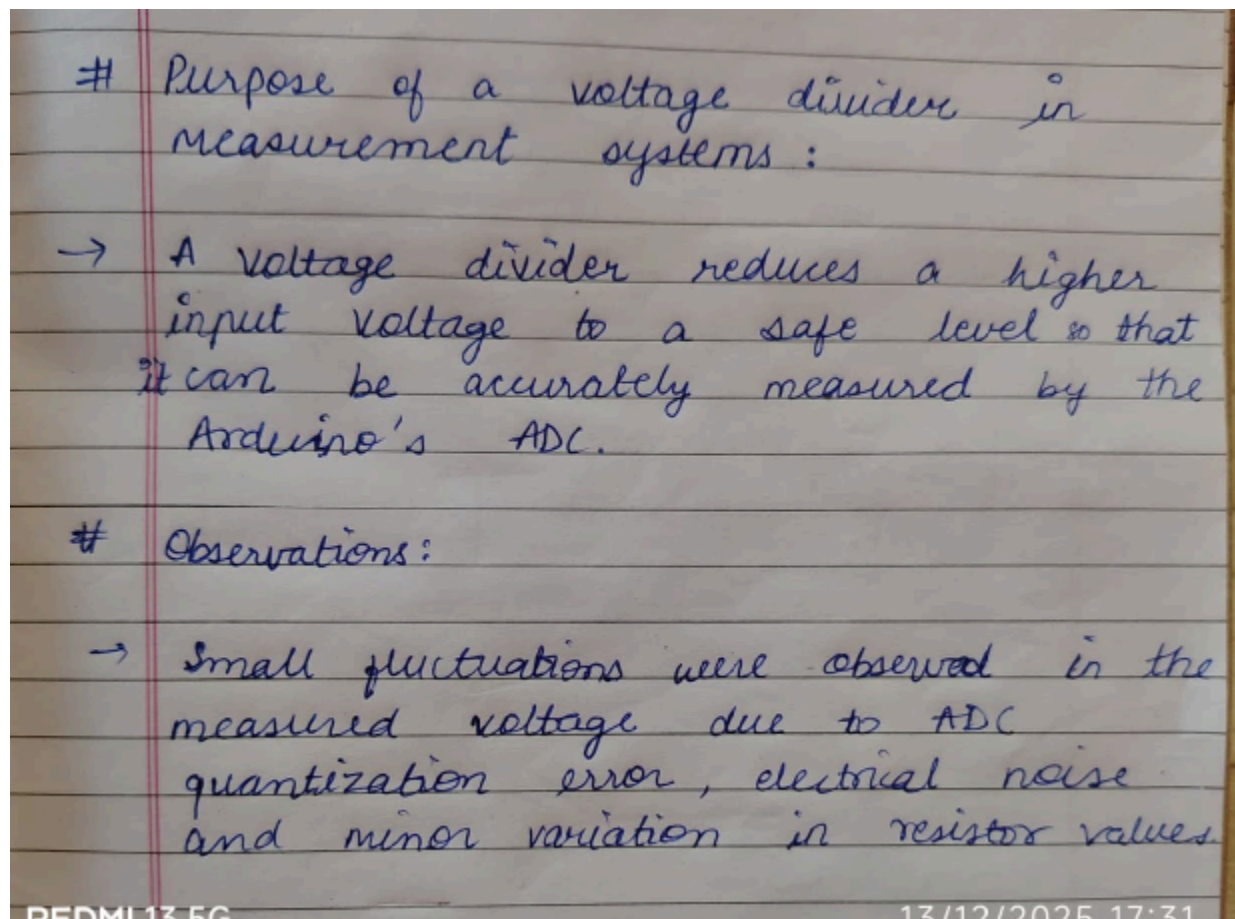 # Purpose of a voltage divider in
measurement systems :
→ A voltage divider reduces a higher
input voltage to a safe level so that
it can be accurately measured by the
Arduino's ADC.
# Observations :
→ Small fluctuations were observed in the
measured voltage due to ADC
quantization error, electrical noise
and minor variation in resistor values.
REDMI 13 5G 13/12/2025 17:31